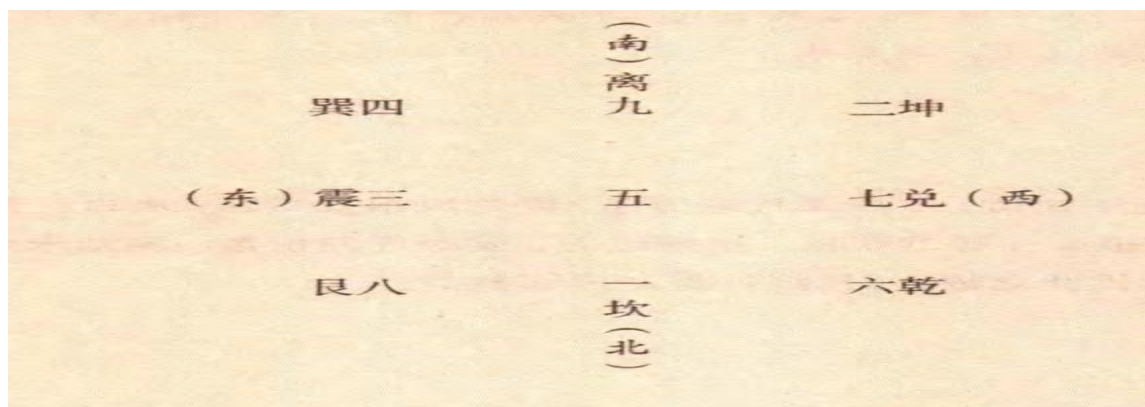 （南）离九
巽四
二坤
（东）震三
五
七兑（西）
艮八
一坎（北）
六乾